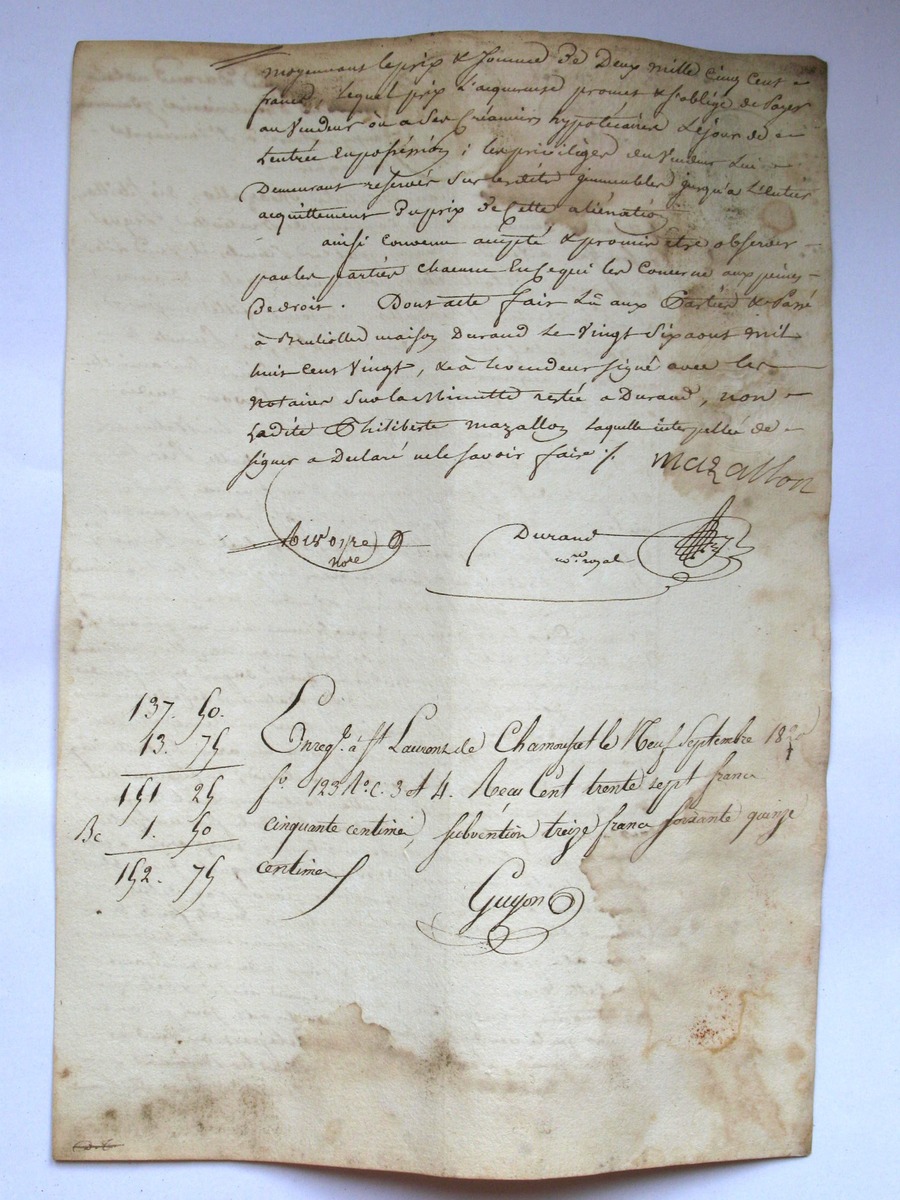 moyennant le prix & somme de Deux mille cinq cent
francs, lequel prix L'acquereuse promet & s'oblige de payer
au vendeur où a ses créanciers hypotécaires Le jour de
L'entrée en poséssion ; les priviléges du vendeur lui
Demeurant reservés sur lesdits immeubles jusqu'à L'entier
acquittement Du prix de Cette aliénation
ainsi convenu accepté & promis être observer
par les parties Chacune En ce qui les Concerne aux peines
De droit. Dont acte fait Lû aux Parties & Passé
à maison Durand Le Vingt Six aout mil
huit cent Vingt, & à le vendeur signé avec les
Notaires Sur la Minutte restée a Durand, non
Ladite Philiberte mazallon Laquelle interpellée de
signer a Declaré ne le savoir faire /.
mazallon
nore
Durand
nore royal
137. 50.
13. 75
151 25
Be 1. 50
152. 75
Enregé. à St Laurent de Chamousset le Neuf Septembre 1820
fo. 123 No. C. 3 et 4. Recu Cent trente sept francs
cinquante centimes, subvention treize francs soixante quinze
centimes
Guyon